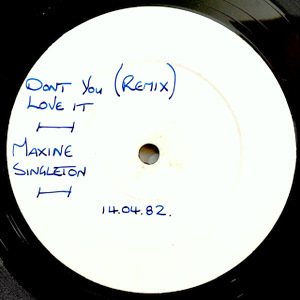 DONT YOU (REMIX)
LOVE IT
MAXINE
SINGLETON
14.04.82.